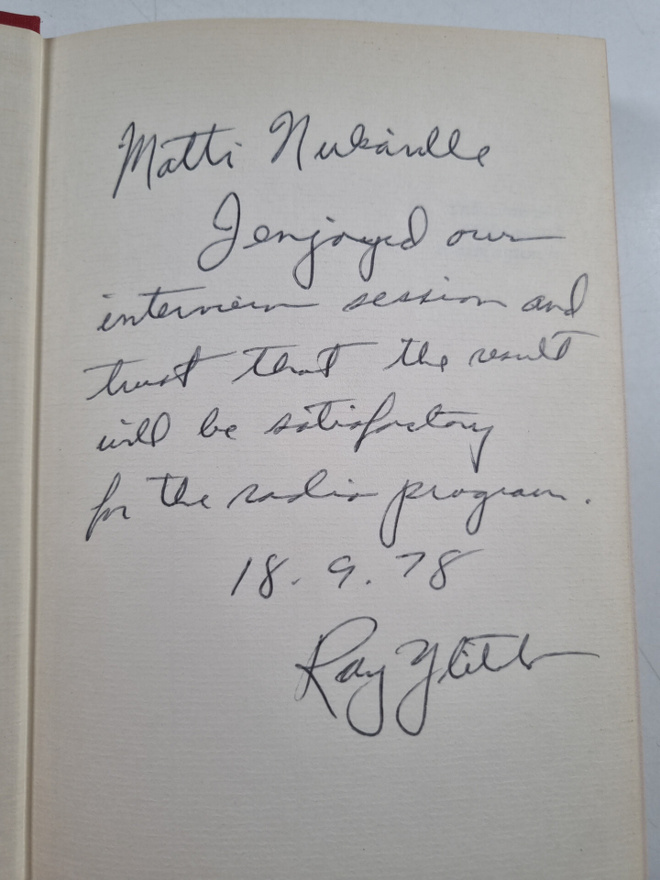 Matti Nukarille
I enjoyed our
interview session and
trust that the result
will be satisfactory
for the radio program.
18.9.78
Ray